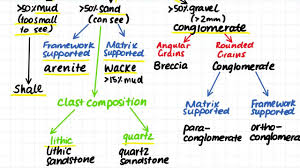 >50% mud
(too small
to see)
>50% sand
(can see)
>50% gravel
(>2mm)
conglomerate
Framework
supported
arenite
Matrix
supported
wacke
>15% mud
Angular
Grains
Breccia
Rounded
Grains
Conglomerate
Shale
Clast Composition
lithic
lithic
Sandstone
quartz
quartz
Sandstone
Matrix
Supported
para-
conglomerate
Framework
Supported
ortho-
conglomerate